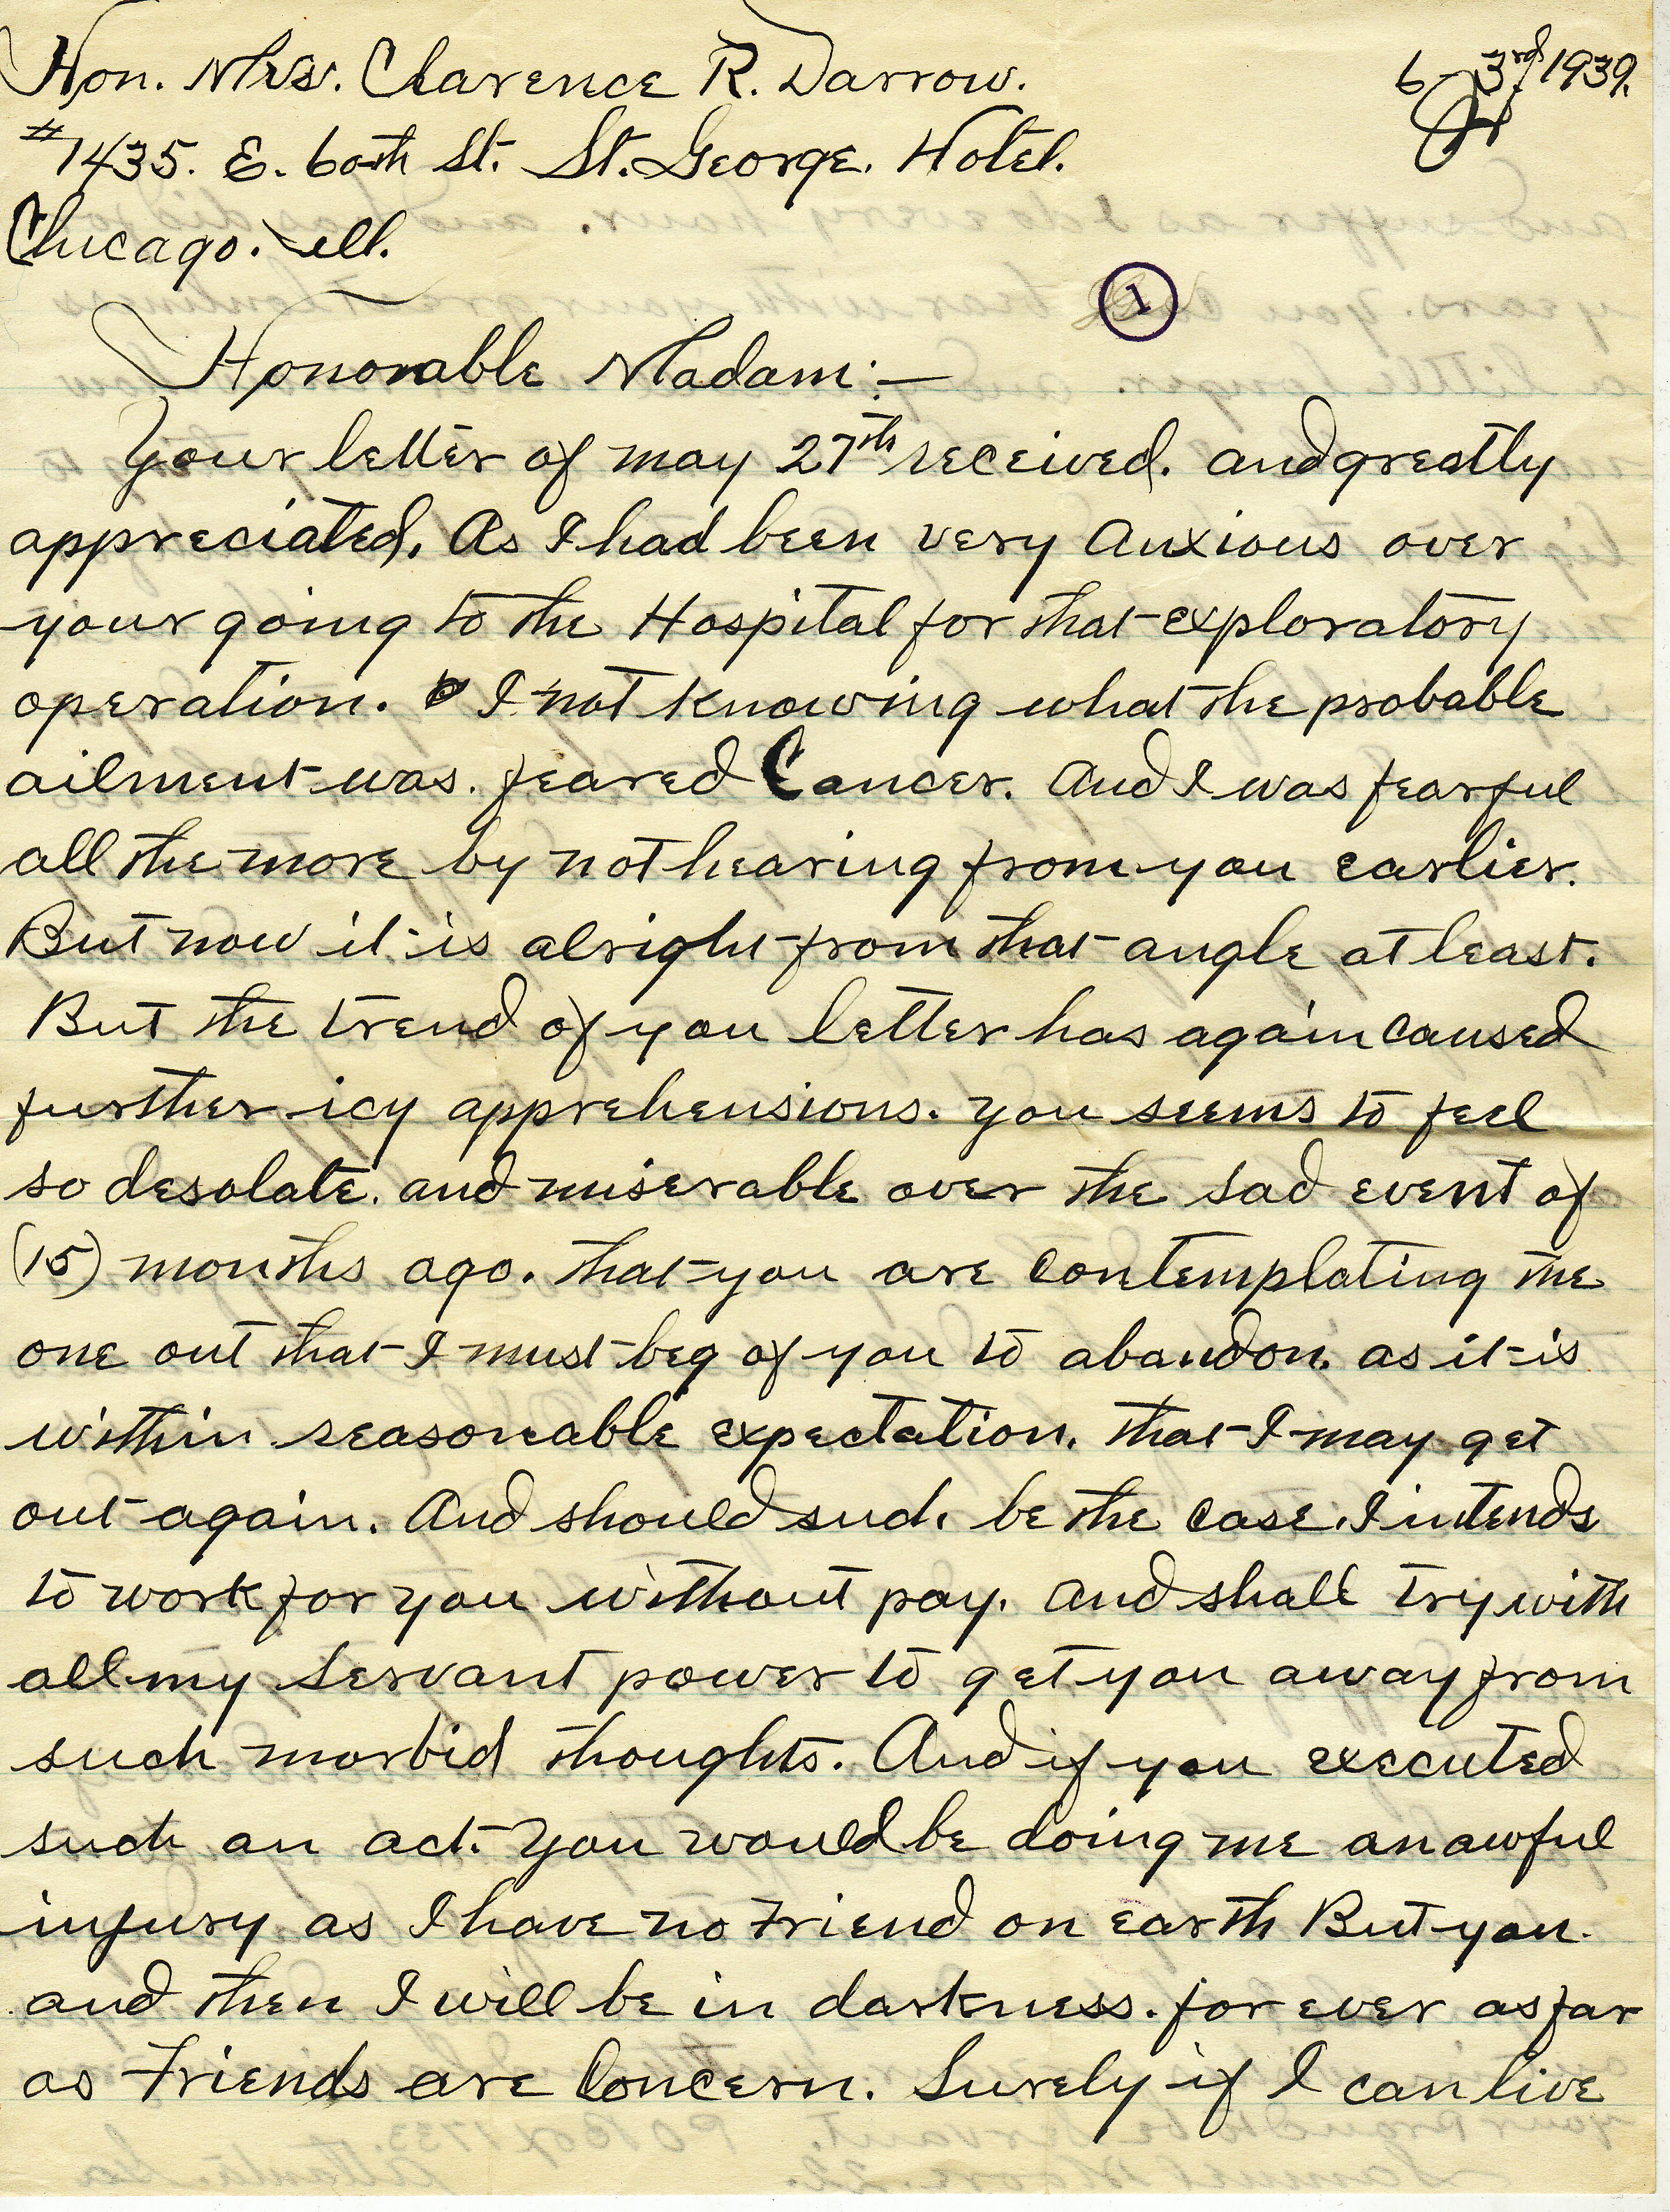 Hon. Mrs. Clarence R. Darrow.
6 3rd 1939.
#1435. E. 60th St. St. George. Hotel.
Chicago. Ill.
1
Honorable Madam:—
Your letter of may 27th received. and greatly
appreciated. As I had been very Anxious over
your going to the Hospital for that exploratory
operation. I not knowing what the probable
ailment was. feared Cancer. And I was fearful
all the more by not hearing from you earlier.
But now it is alright from that angle at least.
But the trend of you letter has again caused
further icy apprehensions. you seems to feel
so desolate. and miserable over the sad event of
(15) months ago. that you are contemplating the
one out that I must beg of you to abandon. as it is
within reasoneable expectation. that I may get
out again. And should such. be the case. I intends
to work for you without pay. and shall try with
all my servant power to get you away from
such morbid thoughts. And if you executed
such an act. You would be doing me an awful
injury as I have no Friend on earth But you.
and then I will be in darkness. for ever as far
as Friends are Concern. Surely if I can live